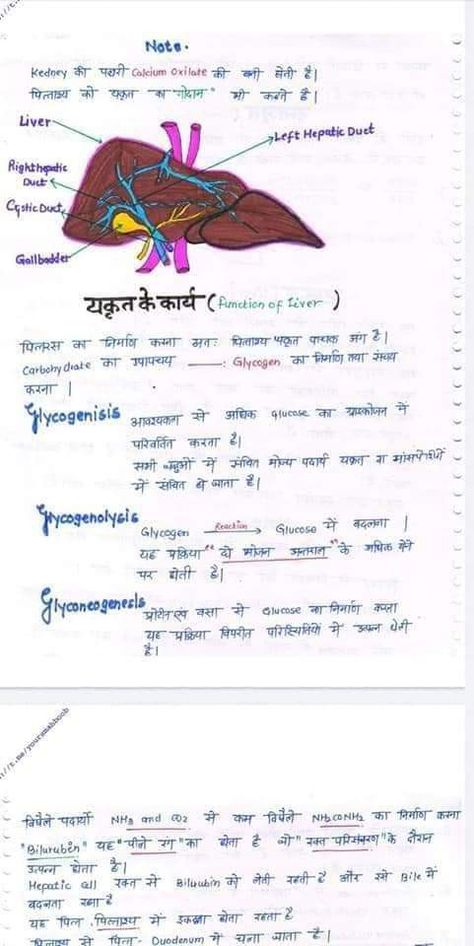 Note.
Kedney की पथरी Calcium Oxilate की बनी होती है|
पित्ताशय को यकृत का "गोदाम" भी कहते है|
Liver
Left Hepatic Duct
Righthepatic
Duct
CysticDuct
Gallbadder
यकृत के कार्य (function of Liver)
पित्तरस का निर्माण करना अतः पित्ताशय यकृत पाचक अंग है|
Carbohydrate का उपापचय : Glycogen का निर्माण तथा संचय
करना |
Glycogenisis आवश्यकता से अधिक Glucose का ग्लाइकोजन में
परिवर्तित करता है|
सभी में संचित भोज्य पदार्थ यकृत या मांसपेशियों
में संचित हो जाता है|
Glycogenolysis
Glycogen Reaction Glucose में बदलना |
यह प्रक्रिया "दो भोजन अन्तराल" के अधिक होने
पर होती है|
Glyconeogenesis प्रोटीन एवं वसा से Glucose का निर्माण करना
यह प्रक्रिया विपरीत परिस्थितियों में उत्पन्न होती
है|
//t.me/yoursmahboob
विषैले पदार्थो NH3 and CO2 से कम विषैले NH2CONH2 का निर्माण करना
"Bilurubèn" यह "पीले रंग" का होता है जो "रक्त परिसंचरण" के दौरान
उत्पन्न होता है|
Hepatic रक्त से Bilirubin को लेती रहती है और उसे Bile में
बदलता रहता है
यह पित्त पित्ताशय में इकठ्ठा होता रहता है
पित्ताशय से पित्त Duodenum में चला जाता है|